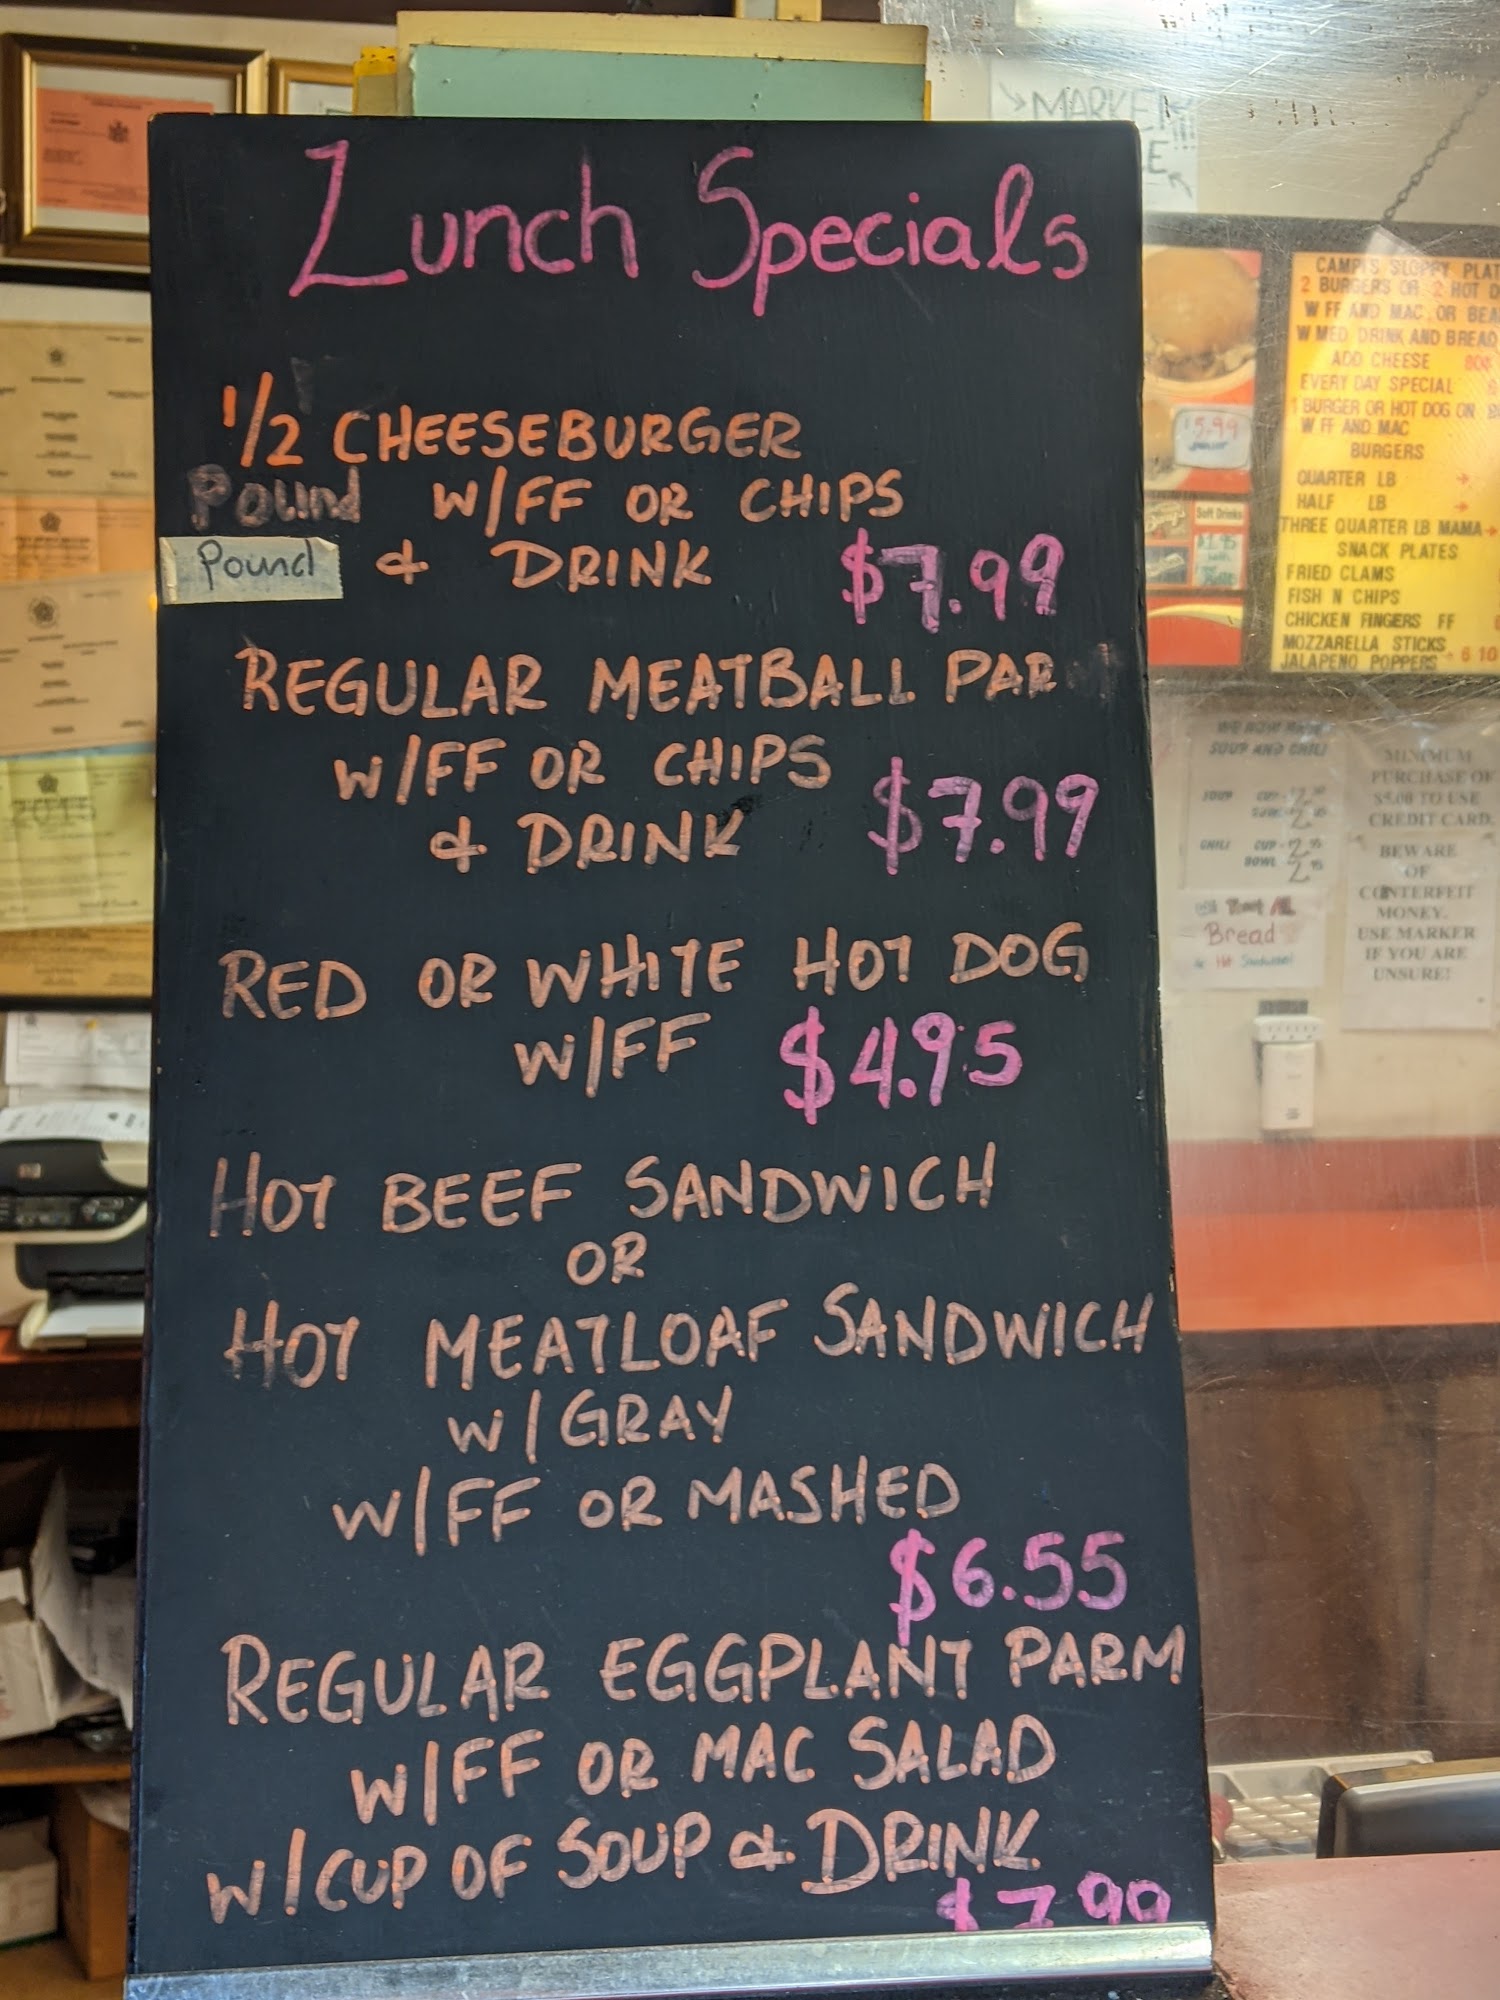 Lunch Specials
1/2 CHEESEBURGER
Pound W/FF OR CHIPS
Pound & DRINK $7.99
REGULAR MEATBALL PAR
W/FF OR CHIPS
& DRINK $7.99
RED OR WHITE HOT DOG
W/FF $4.95
HOT BEEF SANDWICH
OR
HOT MEATLOAF SANDWICH
W/GRAY
W/FF OR MASHED
$6.55
REGULAR EGGPLANT PARM
W/FF OR MAC SALAD
W/CUP OF SOUP & DRINK
$7.99
CAMPI'S SLOPPY PLAT
2 BURGERS OR 2 HOT D
W FF AND MAC OR BEA
W MED DRINK AND BREAD
ADD CHEESE
EVERY DAY SPECIAL
1 BURGER OR HOT DOG ON
W FF AND MAC
BURGERS
QUARTER LB
HALF LB
THREE QUARTER LB MAMA
SNACK PLATES
FRIED CLAMS
FISH N CHIPS
CHICKEN FINGERS FF
MOZZARELLA STICKS
JALAPENO POPPERS 6 10
5.99
Soft Drinks
SOUP AND CHILI
SOUP CUP
CHILI CUP
BOWL
Bread
MINIMUM
PURCHASE OF
$5.00 TO USE
CREDIT CARD.
BEWARE
OF
CONTERFEIT
MONEY.
USE MARKER
IF YOU ARE
UNSURE!